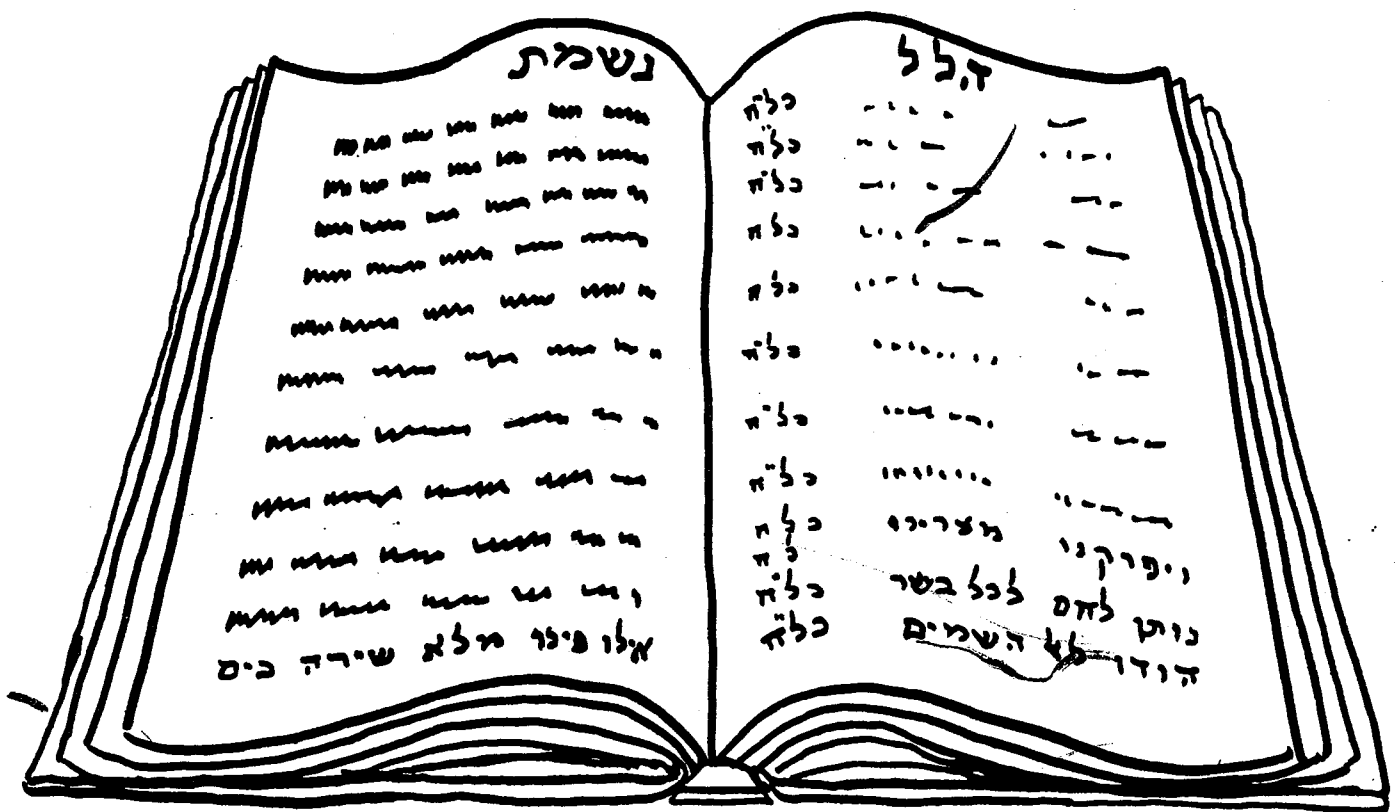 הלל
כל"ח
כל"ח
כל"ח
כל"ח
כל"ח
כל"ח
כל"ח
כל"ח
ויפרקנו מצרינו כל"ח
כ"ח
נותן לחם לכל בשר כל"ח
הודו לל השמים כל"ח
נשמת
אילו פינו מלא שירה כים